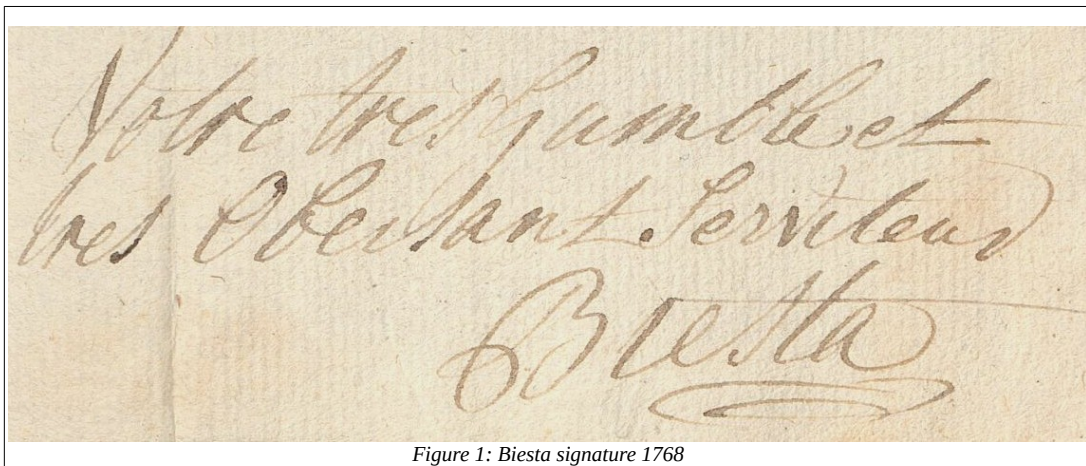 Votre tres humble et
tres Obeissant Serviteur
Biesta
Figure 1: Biesta signature 1768